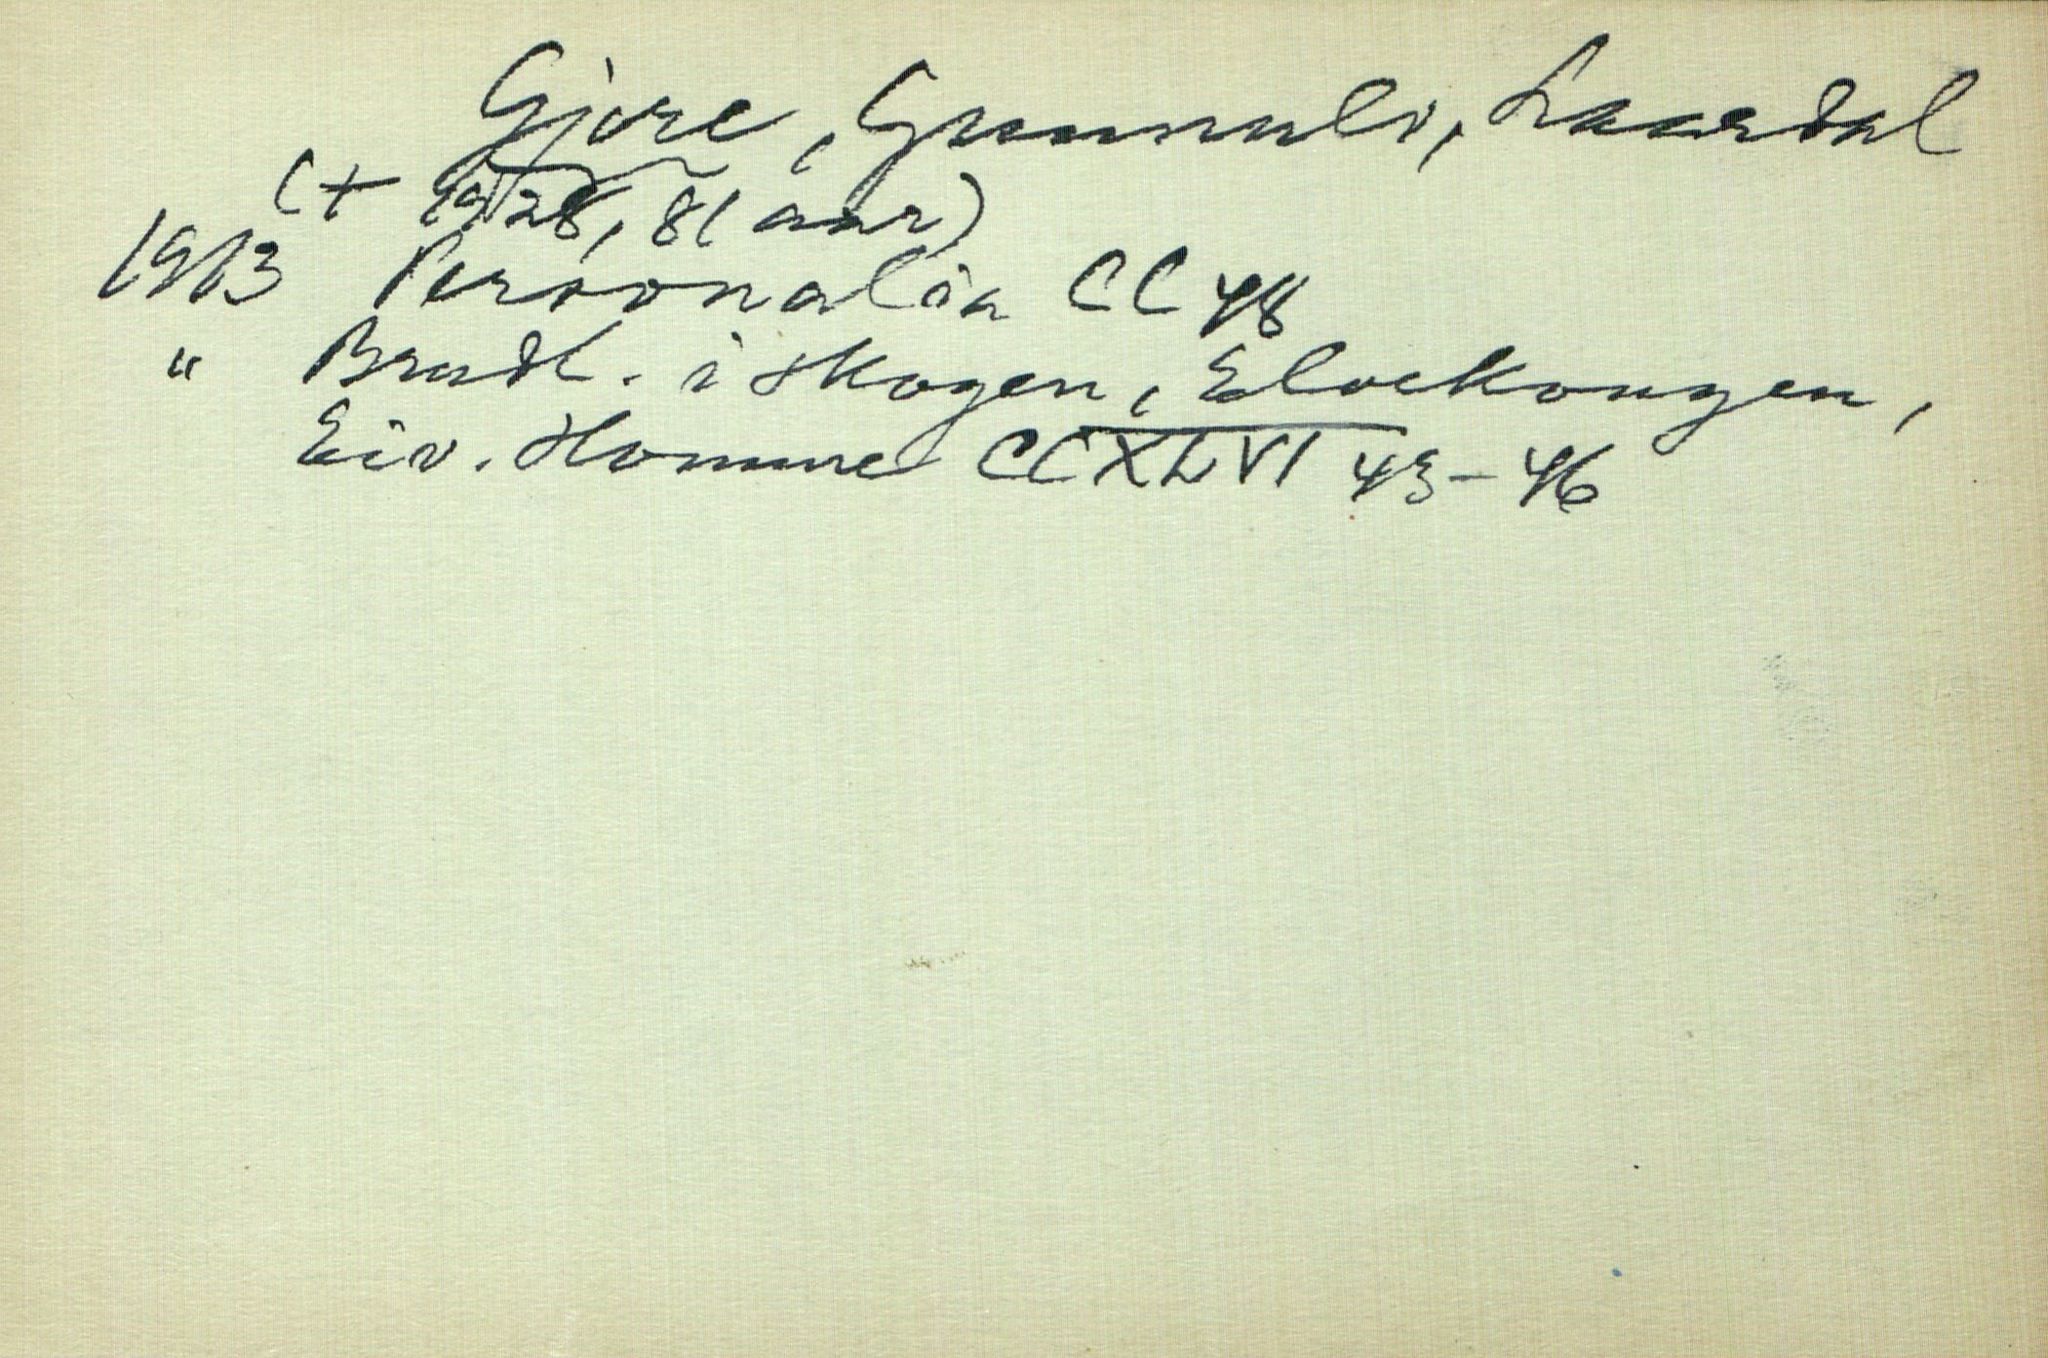 Gjøre, Gunnulv, Laardal
(+ 1928, 81 aar)
1913 Personalia CC 48
" Brudl. i skogen, Elvekongen,
Eiv. Homme CCXLVI 43-46